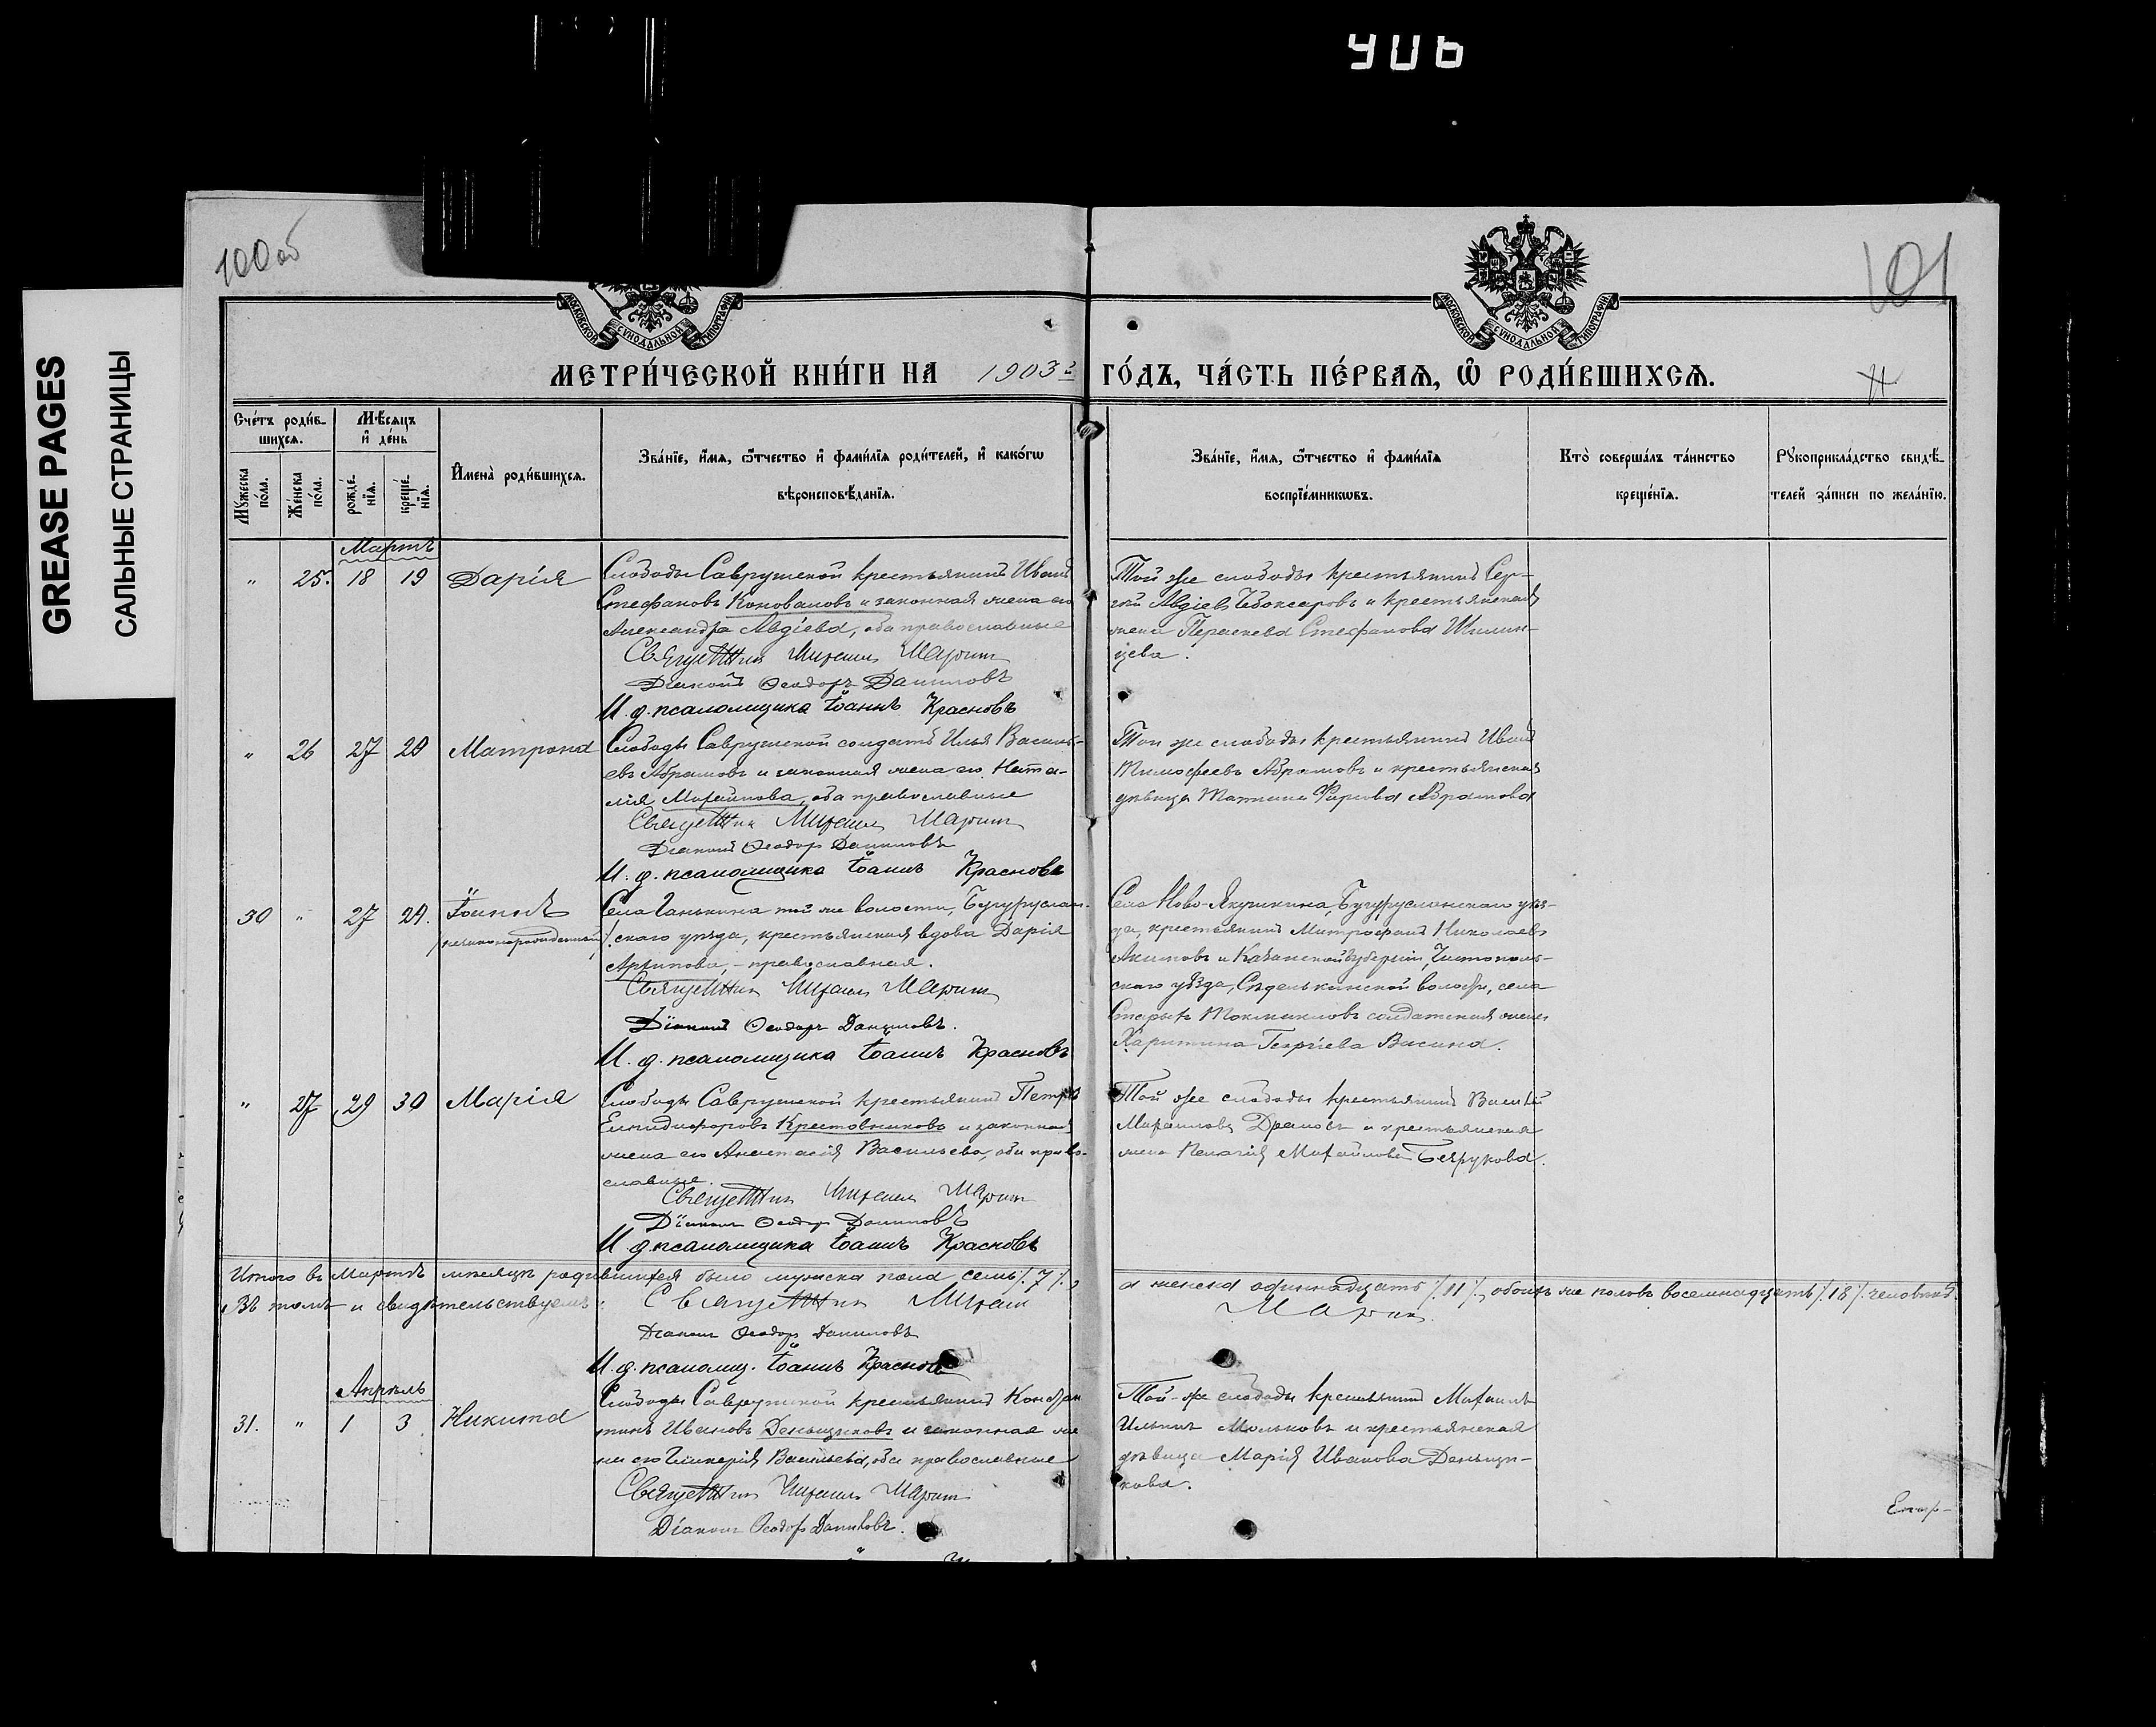 906
GREASE PAGES
САЛЬНЫЕ СТРАНИЦЫ
100 об
101
МОСКОВСКОЙ СѴНОДАЛЬНОЙ ТИПОГРАФІИ
МОСКОВСКОЙ СѴНОДАЛЬНОЙ ТИПОГРАФІИ
МЕТРИ́ЧЕСКОЙ КНИ́ГИ НА 1903 г. ГО́ДЪ, ЧА́СТЬ ПЕ́РВАѦ, Ѽ РОДИ́ВШИХСѦ.
Сче́тъ роди́в-
шихсѧ.
Мѣ́сѧцъ
и҆ де́нь
Мꙋ́жеска
по́ла.
Же́нска
по́ла.
рожде́-
нїѧ.
креще́-
нїѧ.
И҆мена̀ роди́вшихсѧ.
Зва́нїе, и҆́мѧ, ѻ҆́тчество и҆ фами́лїѧ роди́телей, и҆ како́гѡ
вѣроисповѣ́данїѧ.
Зва́нїе, и҆́мѧ, ѻ҆́тчество и҆ фами́лїѧ
воспрїе́мникѡвъ.
Кто̀ соверша́лъ та́инство
креще́нїѧ.
Рꙋкоприкла́дство свидѣ́-
телей за́писи по жела́нїю.
Мартъ
" 25. 18 19 Дарія
Слободы Саврушской крестьянинъ Иванъ
Стефановъ Коноваловъ и законная жена его
Александра Авдіева, оба православные
Священникъ Михаилъ
Діаконъ Ѳеодоръ Даниловъ
И. д. псаломщика Іоаннъ Красновъ
Той же слободы крестьянинъ Сер-
гѣй Авдіевъ Чебоксаровъ и крестьянская
жена Параскева Стефанова Шилин-
цева.
" 26 27 28 Матрона
Слободы Саврушской солдатъ Илья Василь-
евъ Абрамовъ и законная жена его Ната-
лія Михайлова, оба православные
Священникъ Михаилъ
Діаконъ Ѳеодоръ Даниловъ
И. д. псаломщика Іоаннъ Красновъ
Той же слободы крестьянинъ Иванъ
Тимофеевъ Абрамовъ и крестьянская
дѣвица Татьяна Абрамова
30 " 27 29. Іоаннъ
/незаконорожденный/
Села Ганькина той же волости, Бугуруслан-
скаго уѣзда, крестьянская вдова Дарія
Архипова, - православная.
Священникъ Михаилъ
Діаконъ Ѳеодоръ Даниловъ.
И. д. псаломщика Іоаннъ Красновъ
Села Ново-Якушкина, Бугурусланскаго уѣз-
да, крестьянинъ Митрофанъ Николаевъ
Акимовъ и Казанской губерніи, Чистополь-
скаго уѣзда, волости, села
Старыхъ солдатская жена
Харитина Георгіева Васина.
" 27 29 30 Марія
Слободы Саврушской крестьянинъ Петръ
Елпидифоровъ Крестовниковъ и законная
жена его Анастасія Васильева, оба право-
славные.
Священникъ Михаилъ
Діаконъ Ѳеодоръ Даниловъ
И. д. псаломщика Іоаннъ Красновъ
Той же слободы крестьянинъ Василій
Михаиловъ и крестьянская
жена Пелагія Михайлова Безрукова.
Итого въ Мартѣ мѣсяцѣ родившихся было мужска пола семь /7/, а женска одиннадцать /11/, обоихъ же половъ восемнадцать /18/ человѣкъ.
Въ томъ и свидѣтельствуемъ: Священникъ Михаилъ
Діаконъ Ѳеодоръ Даниловъ
И. д. псаломщ. Іоаннъ Красновъ
Апрѣль
31. " 1 3 Никита
Слободы Саврушской крестьянинъ Констан-
тинъ Ивановъ Деньщиковъ и законная же-
на его Гликерія Васильева, оба православные
Священникъ Михаилъ
Діаконъ Ѳеодоръ Даниловъ.
Той-же слободы крестьянинъ Михаилъ
Ильинъ и крестьянская
дѣвица Марія Иванова Деньщи-
кова.